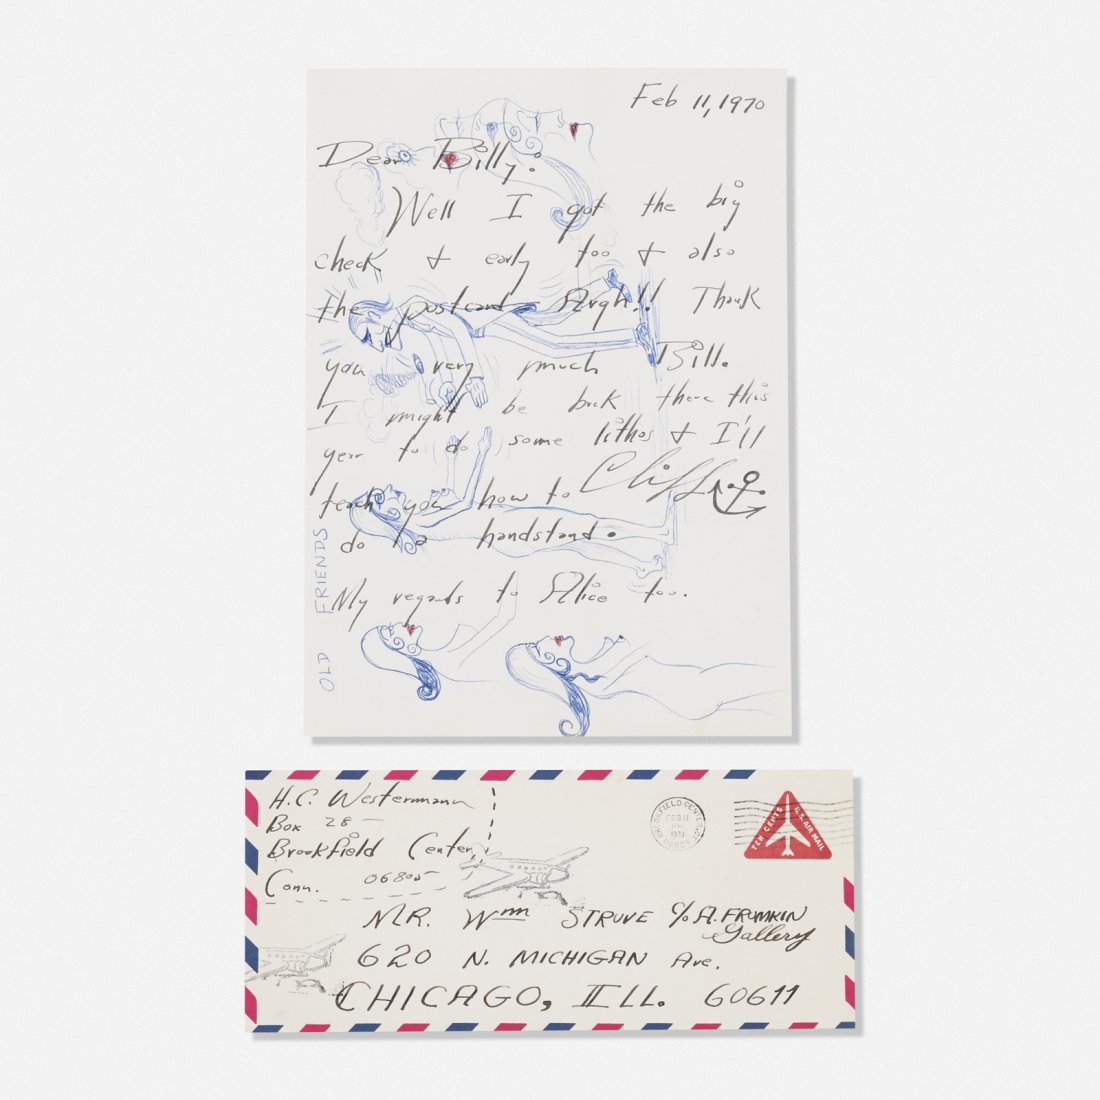 Feb 11, 1970
Dear Billy:
Well I got the big
check + early too + also
the postcard - Argh!! Thank
you very much Bill.
I might be back there this
year to do some lithos + I'll
teach you how to
do a handstand.
Cliff
My regards to Alice too.
OLD FRIENDS
H.C. Westermann
Box 28 -
Brookfield Center
Conn. 06805
BROOKFIELD CENTER
FEB 11
1970
TEN CENTS U.S. AIR MAIL
MR. Wmm STRUVE c/o A. FRUMKIN
Gallery
620 N. MICHIGAN Ave.
CHICAGO, ILL. 60611